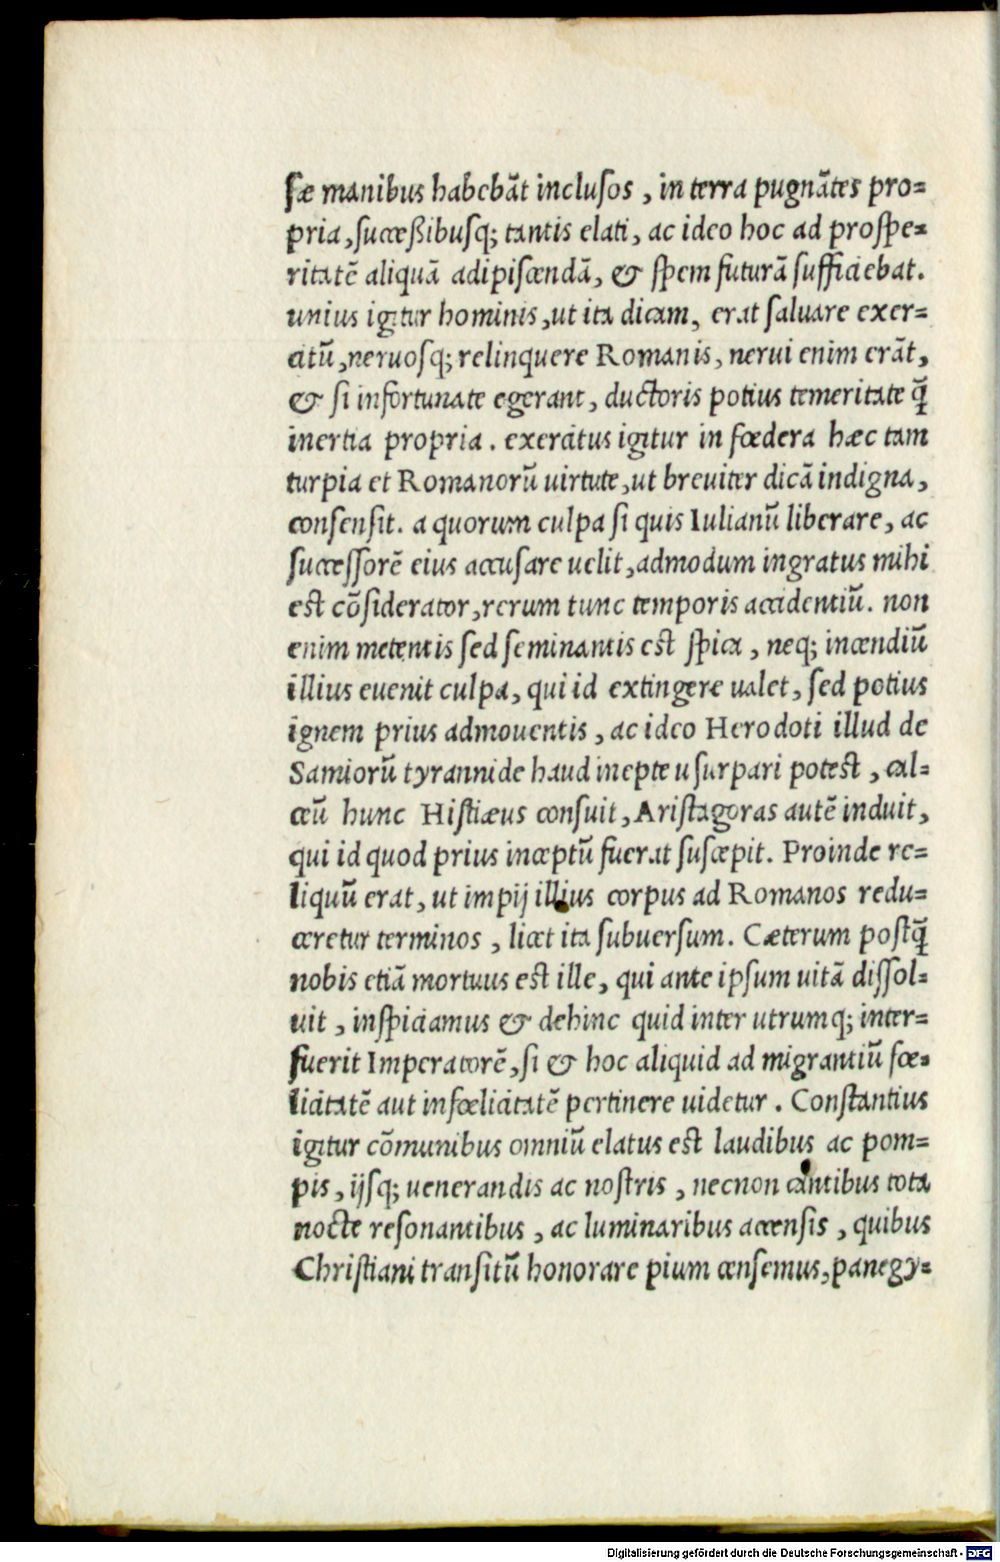 ſæ manibus habebāt incluſos, in terra pugnātes pro=
pria, ſucceßibusq; tantis elati, ac ideo hoc ad proſpe=
ritatē aliquā adipiſcendā, & ſpem futurā ſufficiebat.
unius igitur hominis, ut ita dicam, erat ſaluare exer=
citū, neruosq; relinquere Romanis, nerui enim erāt,
& ſi infortunate egerant, ductoris potius temeritate q̄
inertia propria. exercitus igitur in fœdera hæc tam
turpia et Romanorū uirtute, ut breuiter dicā indigna,
conſenſit. a quorum culpa ſi quis Iulianū liberare, ac
ſucceſſorē eius accuſare uelit, admodum ingratus mihi
est cōſiderator, rerum tunc temporis accidentiū. non
enim metentis ſed ſeminantis est ſpica, neq; incendiū
illius euenit culpa, qui id extingere ualet, ſed potius
ignem prius admouentis, ac ideo Herodoti illud de
Samiorū tyrannide haud inepte uſurpari potest, cal=
ceū hunc Hiſtiæus conſuit, Ariſtagoras autē induit,
qui id quod prius inceptū fuerat ſuſcepit. Proinde re=
liquū erat, ut impij illius corpus ad Romanos redu=
ceretur terminos, licet ita ſubuerſum. Cæterum postq̄
nobis etiā mortuus est ille, qui ante ipſum uitā diſſol=
uit, inſpiciamus & dehinc quid inter utrumq; inter=
fuerit Imperatorē, ſi & hoc aliquid ad migrantiū fœ=
licitatē aut infœlicitatē pertinere uidetur. Conſtantius
igitur cōmunibus omniū elatus est laudibus ac pom=
pis, ijſq; uenerandis ac noſtris, necnon cantibus tota
nocte reſonantibus, ac luminaribus accenſis, quibus
Chriſtiani tranſitū honorare pium cenſemus, panegy=
Digitalisierung gefördert durch die Deutsche Forschungsgemeinschaft - DFG